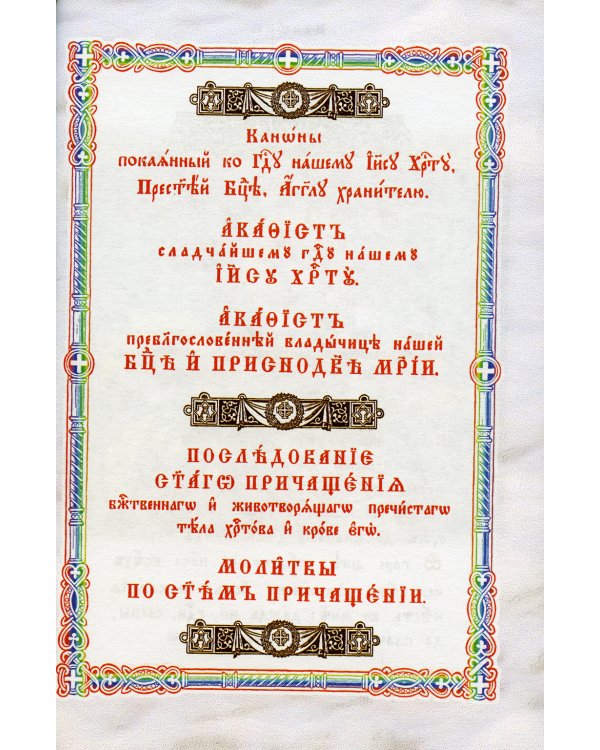 Канѡ́ны
покаѧ́нный ко Гдⷭ҇ꙋ на́шемꙋ І҆и҃сꙋ Хрⷭ҇тꙋ̀,
Прест҃ѣ́й Бцⷣѣ, А҆́гг҃лꙋ храни́телю.
А҆ка́ѳїстъ
сладча́йшемꙋ гдⷭ҇ꙋ на́шемꙋ
І҆и҃сꙋ хрⷭ҇тꙋ̀.
А҆ка́ѳїстъ
пребл҃гослове́ннѣй влады́чицѣ на́шей
бцⷣѣ и҆ приснодв҃ѣ мр҃і́и.
Послѣ́дованїе
ст҃а́гѡ причаще́нїѧ
бж҃е́ственнагѡ и҆ животворѧ́щагѡ пречи́стагѡ
тѣ́ла хрⷭ҇то́ва и҆ кро́ве є҆гѡ̀.
Моли̑твы
по ст҃ѣ́мъ причаще́нїи.